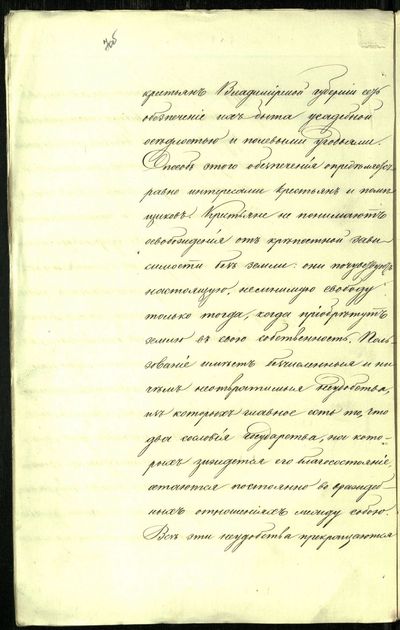 крестьянъ Владимірской губерніи есть
обезпеченіе ихъ быта усадебной
осѣдлостью и полевыми угодьями.
Способъ этого обезпеченія опредѣляется
равно интересами крестьянъ и помѣ-
щиковъ. Крестьяне не понимаютъ
освобожденія отъ крѣпостной зави-
симости безъ земли: они почувствуютъ
настоящую, немнимую свободу
только тогда, когда пріобрѣтутъ
землю въ свою собственность. Поль-
зованіе имѣетъ безчисленныя и ни
чѣмъ неотвратимыя неудобства,
изъ которыхъ главное есть то, что
два сословія Государства, на кото-
рыхъ зиждется его благосостояніе,
останутся постоянно во враждеб-
ныхъ отношеніяхъ между собою.
Всѣ эти неудобства прекращаются